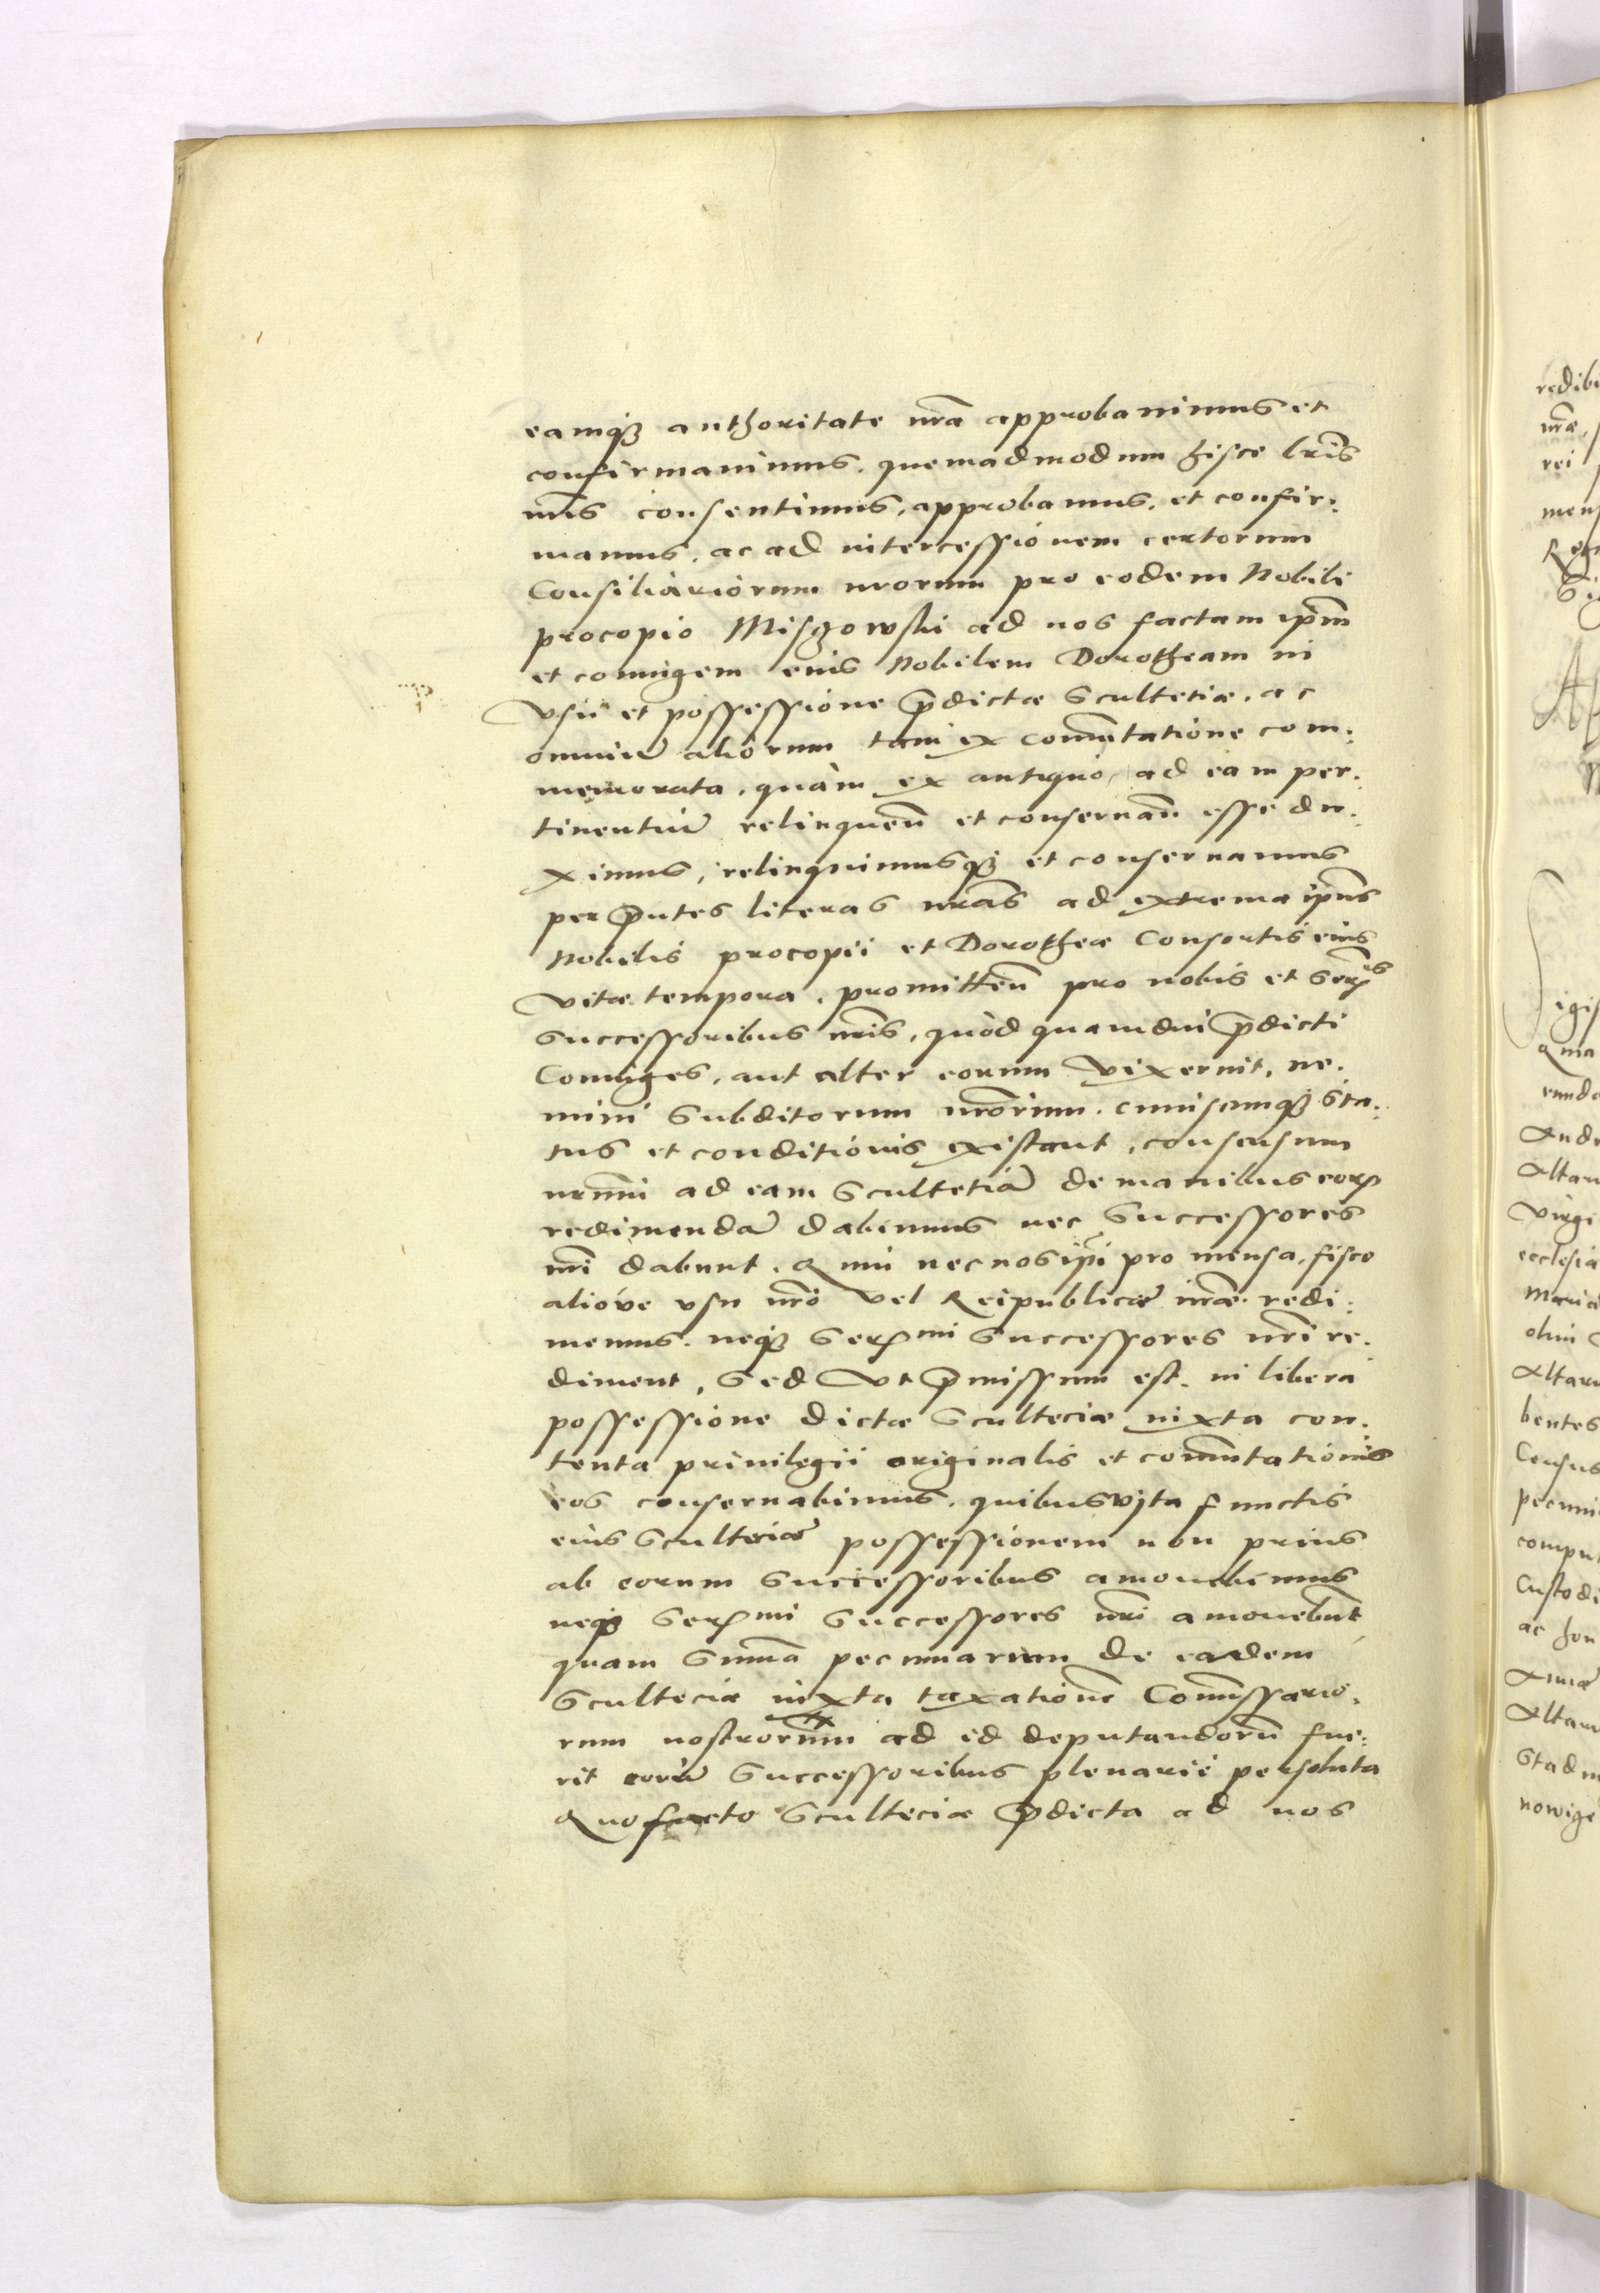 eamq3 authoritate nrã approbavimus et
confirmavimus. quemadmodum hisce lris
nris consentimus, approbamus, et confir:
mamus. ac ad intercessionem certorum
Consiliariorum nrorum pro eodem Nobili
procopio Miszowski ad nos factam ipm̃
et coniugem eius Nobilem Dorotheam in
vsu et possessione p̃dictæ Scultetiæ. ac
omniũ aliorum tam ex comutatione com:
memorata, quàm ex antiquo, ad eam per:
tinentiũ relinquen̄ et conservan̄ esse du:
ximus, relinquimusq3 et conservamus
per p̃ntes literas nrãs ad extrema ipũs
Nobilis procopii et Dorotheæ Consortis eius
vitæ tempora. promitten̄ pro nobis et Serx̃is
Successoribus nris, quòd quamdiu p̃dicti
Coniuges, aut alter eorum vixerint, ne:
mini Subditorum nrõrum. cuiuscunq3 sta:
tus et conditionis existant, consensum
nrum̃ ad eam Scultetiã de manibus eorꝝ
redimendã dabimus nec Successores
nri dabunt. Qui nec nos ipi pro mensa, fisco
aliòve vsu nrõ vel Reipublicæ nræ redi:
memus. neq3 Serx̃mi Successores nri re:
diment, Sed vt p̃missum est. in libera
possessione dictæ Sculteciæ iuxta con:
tenta privilegii originalis et comutationis
eos conservabimus. quibus vita functis
eius Sculteciæ possessionem non prius
ab eorum Successoribus amovebimus
neq3 Serx̃mi Successores nri amovebunt
quam Summa pecuniarum de eadem
Scultecia iuxta taxationẽ Comissario:
rum nostrorum ad id deputandorũ fue:
rit eorũ Successoribus plenarie persoluta
Quo facto Sculteciæ p̃dicta ad nos